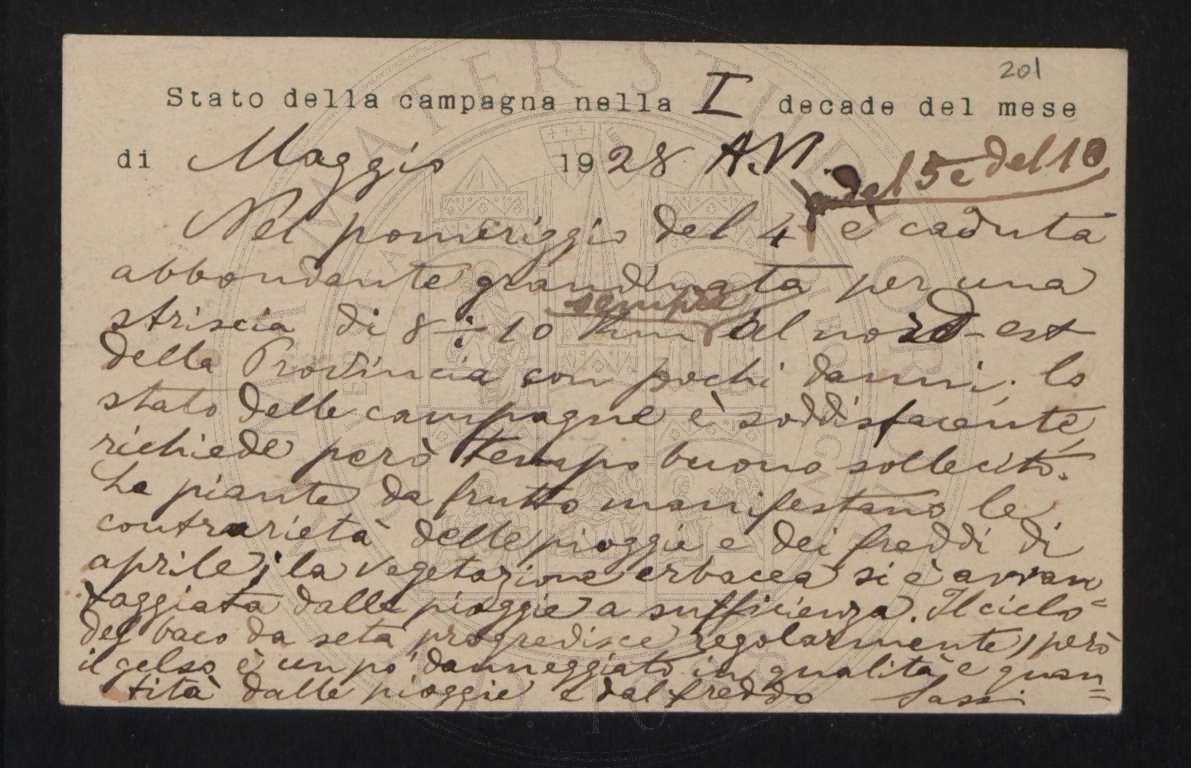 201
Stato della campagna nella I decade del mese
di Maggio 1928 A. VI
del 5 e del 10
Nel pomeriggio del 4 è caduta
abbondante grandinata per una
sempre
striscia di 8 ÷ 10 Km al nord-est
della Provincia con pochi danni. lo
stato delle campagne è soddisfacente,
richiede però tempo buono sollecito.
Le piante da frutto manifestano le
contrarietà delle pioggie e dei freddi di
aprile; la vegetazione erbacea si è avvan=
taggiata dalle pioggie a sufficienza. Il ciclo
del baco da seta progredisce regolarmente, però
il gelso è un po' danneggiato in qualità e quan=
tità dalle pioggie e dal freddo Sassi